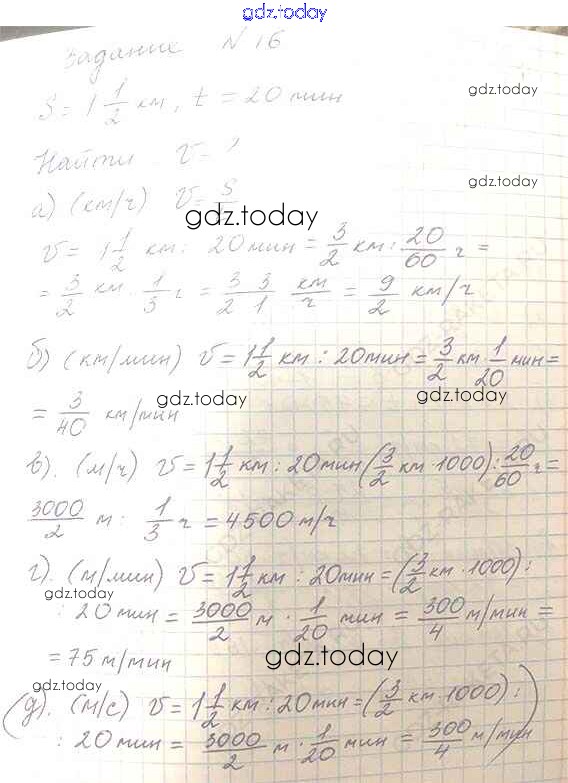 gdz.today
Задание N 16
S = 1 1/2 км, t = 20 мин
gdz.today
Найти V = ?
gdz.today
а) (км/ч) V = S
gdz.today
V = 1 1/2 км : 20 мин = 3/2 км : 20/60 ч =
= 3/2 км · 1/3 ч = 3/2 3/1 км/ч = 9/2 км/ч
б) (км/мин) V = 1 1/2 км : 20 мин = 3/2 км · 1/20 мин =
gdz.today gdz.today
= 3/40 км/мин
в). (м/ч) V = 1 1/2 км : 20 мин (3/2 км · 1000) : 20/60 ч =
3000/2 м : 1/3 ч = 4500 м/ч
г). (м/мин) V = 1 1/2 км : 20 мин = (3/2 км · 1000) :
gdz.today
: 20 мин = 3000/2 м · 1/20 мин = 300/4 м/мин =
= 75 м/мин
gdz.today
gdz.today
(д). (м/с) V = 1 1/2 км : 20 мин = (3/2 км · 1000) :
: 20 мин = 3000/2 м · 1/20 мин = 300/4 м/мин)